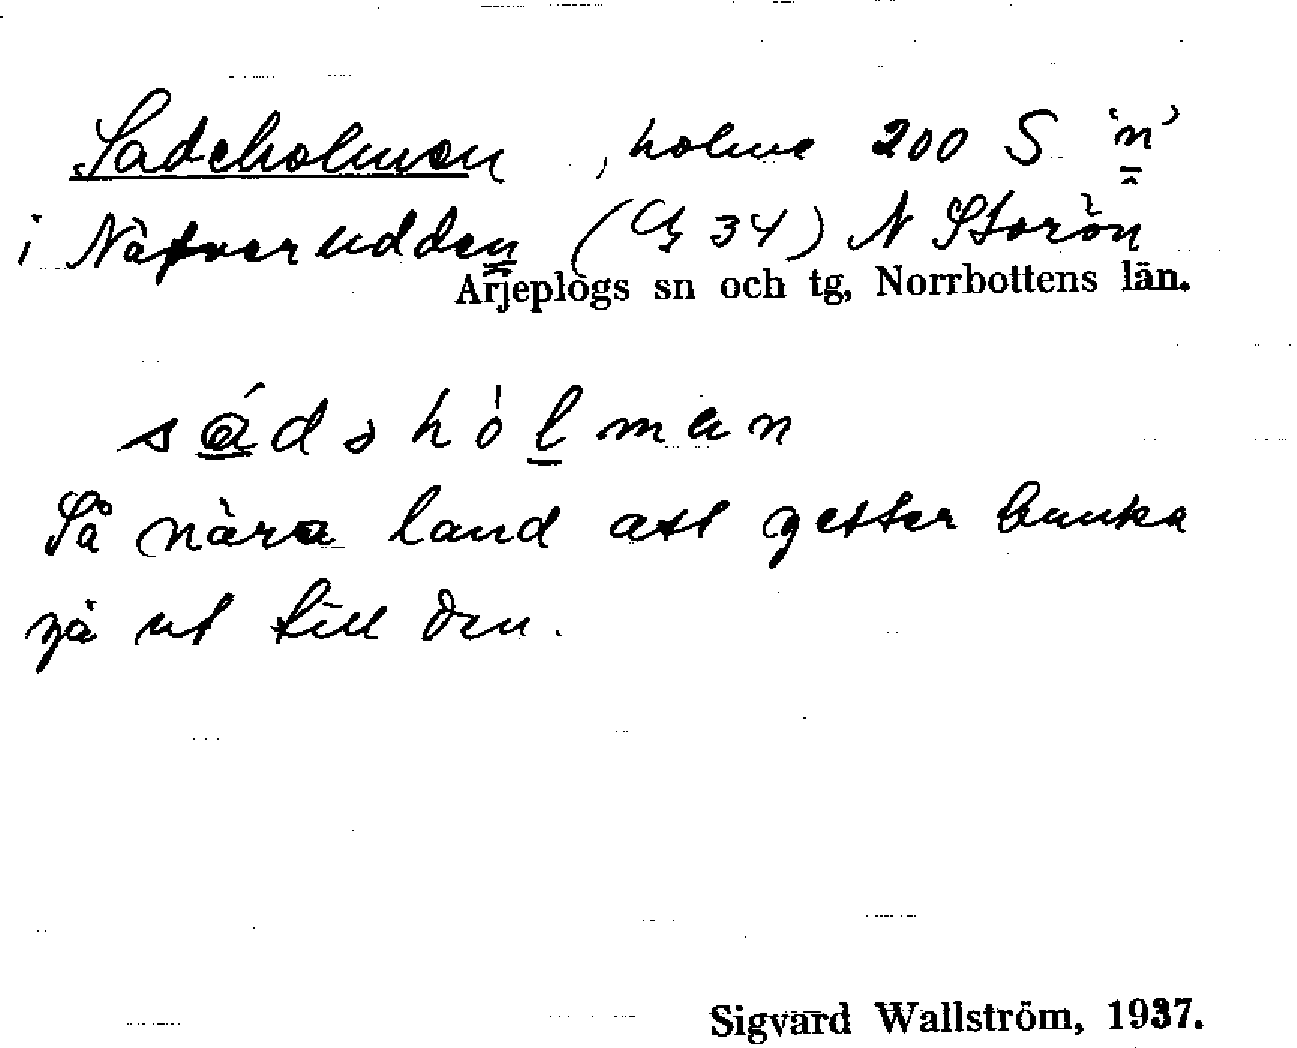 Sadeholmen, holme 200 S 'n'
i Nätverudden (C5 34) N Storön
Arjeplogs sn och tg, Norrbottens län.
sádəhòlmen
Så nära land att getter bruka
gå ut till den.
Sigvard Wallström, 1937.